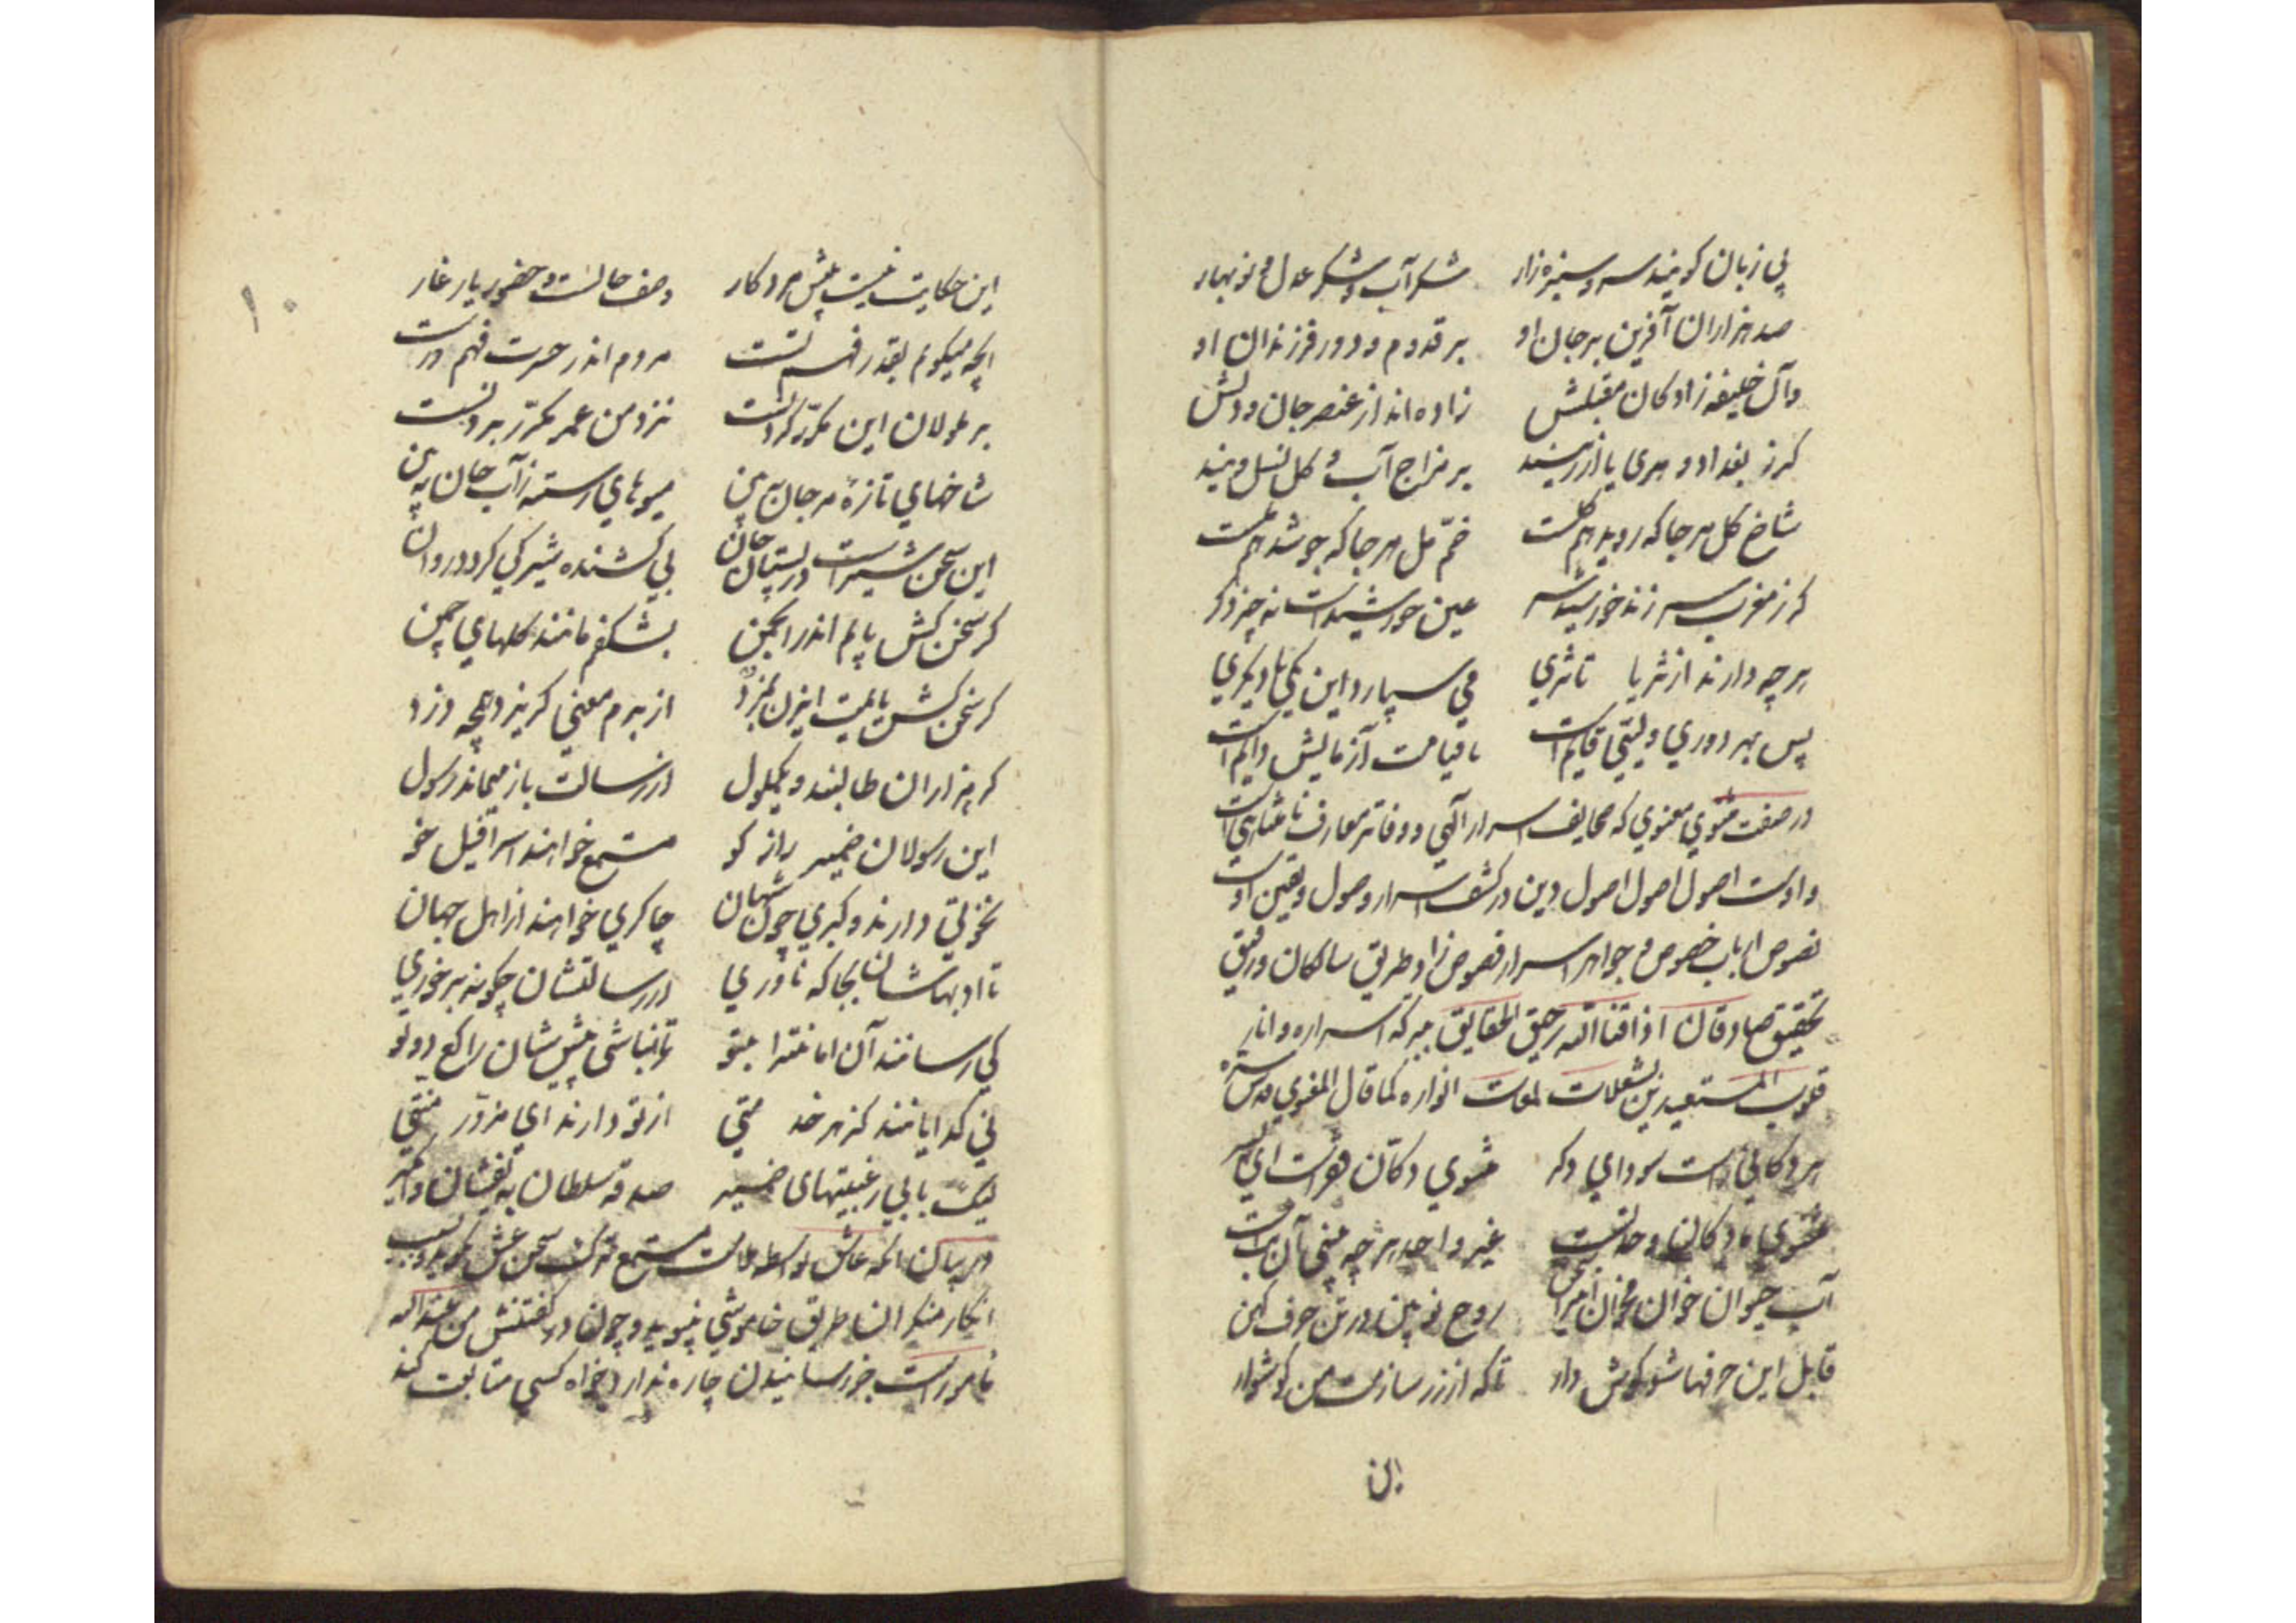 بی زبان کویند سرو و سبزه زار شکر آب و شکر عدل نوبهار
صد هزاران آفرین بر جان او بر قدوم و دور فرزندان او
وآن خلیفه زادکان مقبلش زاده اند از عنصر جان و دلش
کر ز بغداد و هری یا از ریند بی مزاج آب و کل نسل ویند
شاخ کل هر جا که روید هم کلست خم مل هر جا که جوشد هم ملست
کر ز مغرب سر زند خورشید سر عین خورشیدست نه چیز دکر
هر چه دارند از ثریا تا ثری می سپارد این یکی با دیکری
پس بهر دوری ولیی قایم است تا قیامت آزمایش دایم است
در صفت مثنوی معنوی که صحایف اسرار الهی و دفاتر معارف نامتناهی است
و اوست اصول اصول اصول دین در کشف اسرار وصول و یقین اوست
نصوص ارباب خصوص و جواهر اسرار فصوص زاد طریق سالکان و رفیق
تحقیق صادقان اذاقنا الله رحیق الحقایق ببرکه اسراره و انار
قلوب المستعیدین بشعلات لمعات انواره کما قال المعنوی قدس سره
هر دکانی راست سودای دکر مثنوی دکان فقرست ای پسر
مثنوی ما دکان وحدتست غیر واحد هر چه بینی آن بتست
آب حیوان خوان مخوان این را سخن روح نو بین در تن حرف کهن
قابل این حرفها شو کوش دار تا که از زر سازمت من کوشوار
این
این حکایت نیست پیش مرد کار وصف حالست و حضور یار غار
آنچه میکویم بقدر فهم تست مردم اندر حسرت فهم درست
بر ملولان این مکرر کردنست نزد من عمر مکرر بردنست
شاخهای تازهٔ مرجان ببین میوهای رسته ز آب جان ببین
این سخن شیرست در پستان جان بی کشنده شیر کی کردد روان
کر سخن کش یابم اندر انجمن بشکفم مانند کلهای چمن
کر سخن کش یابمت این زن بمزد از برم معنی کریزد همچو دزد
کر هزاران طالبند و یک ملول از رسالت باز میماند رسول
این رسولان ضمیر راز کو مستمع خواهند اسرافیل خو
نخوتی دارند و کبری چون شهان چاکری خواهند از اهل جهان
تا ادبهاشان بجا که ناوری از رسالتشان چکونه برخوری
کی رسانند آن امانترا بتو تا نباشی پیش شان راکع دوتو
نی کدایانند کز هر خدمتی از تو دارند ای مزور منتی
لیک با بی رغبتیهای ضمیر صدقه سلطان بیفشان وامگیر
در بیان آنکه عاشق بواسطه ملالت مستمع ترک سخن عشق نکوید و بسبب
انکار منکران طریق خاموشی نپوید و چون در کفتنش من عند الله
مامورست جز رسانیدن چاره ندارد خواه کسی متابعت کند